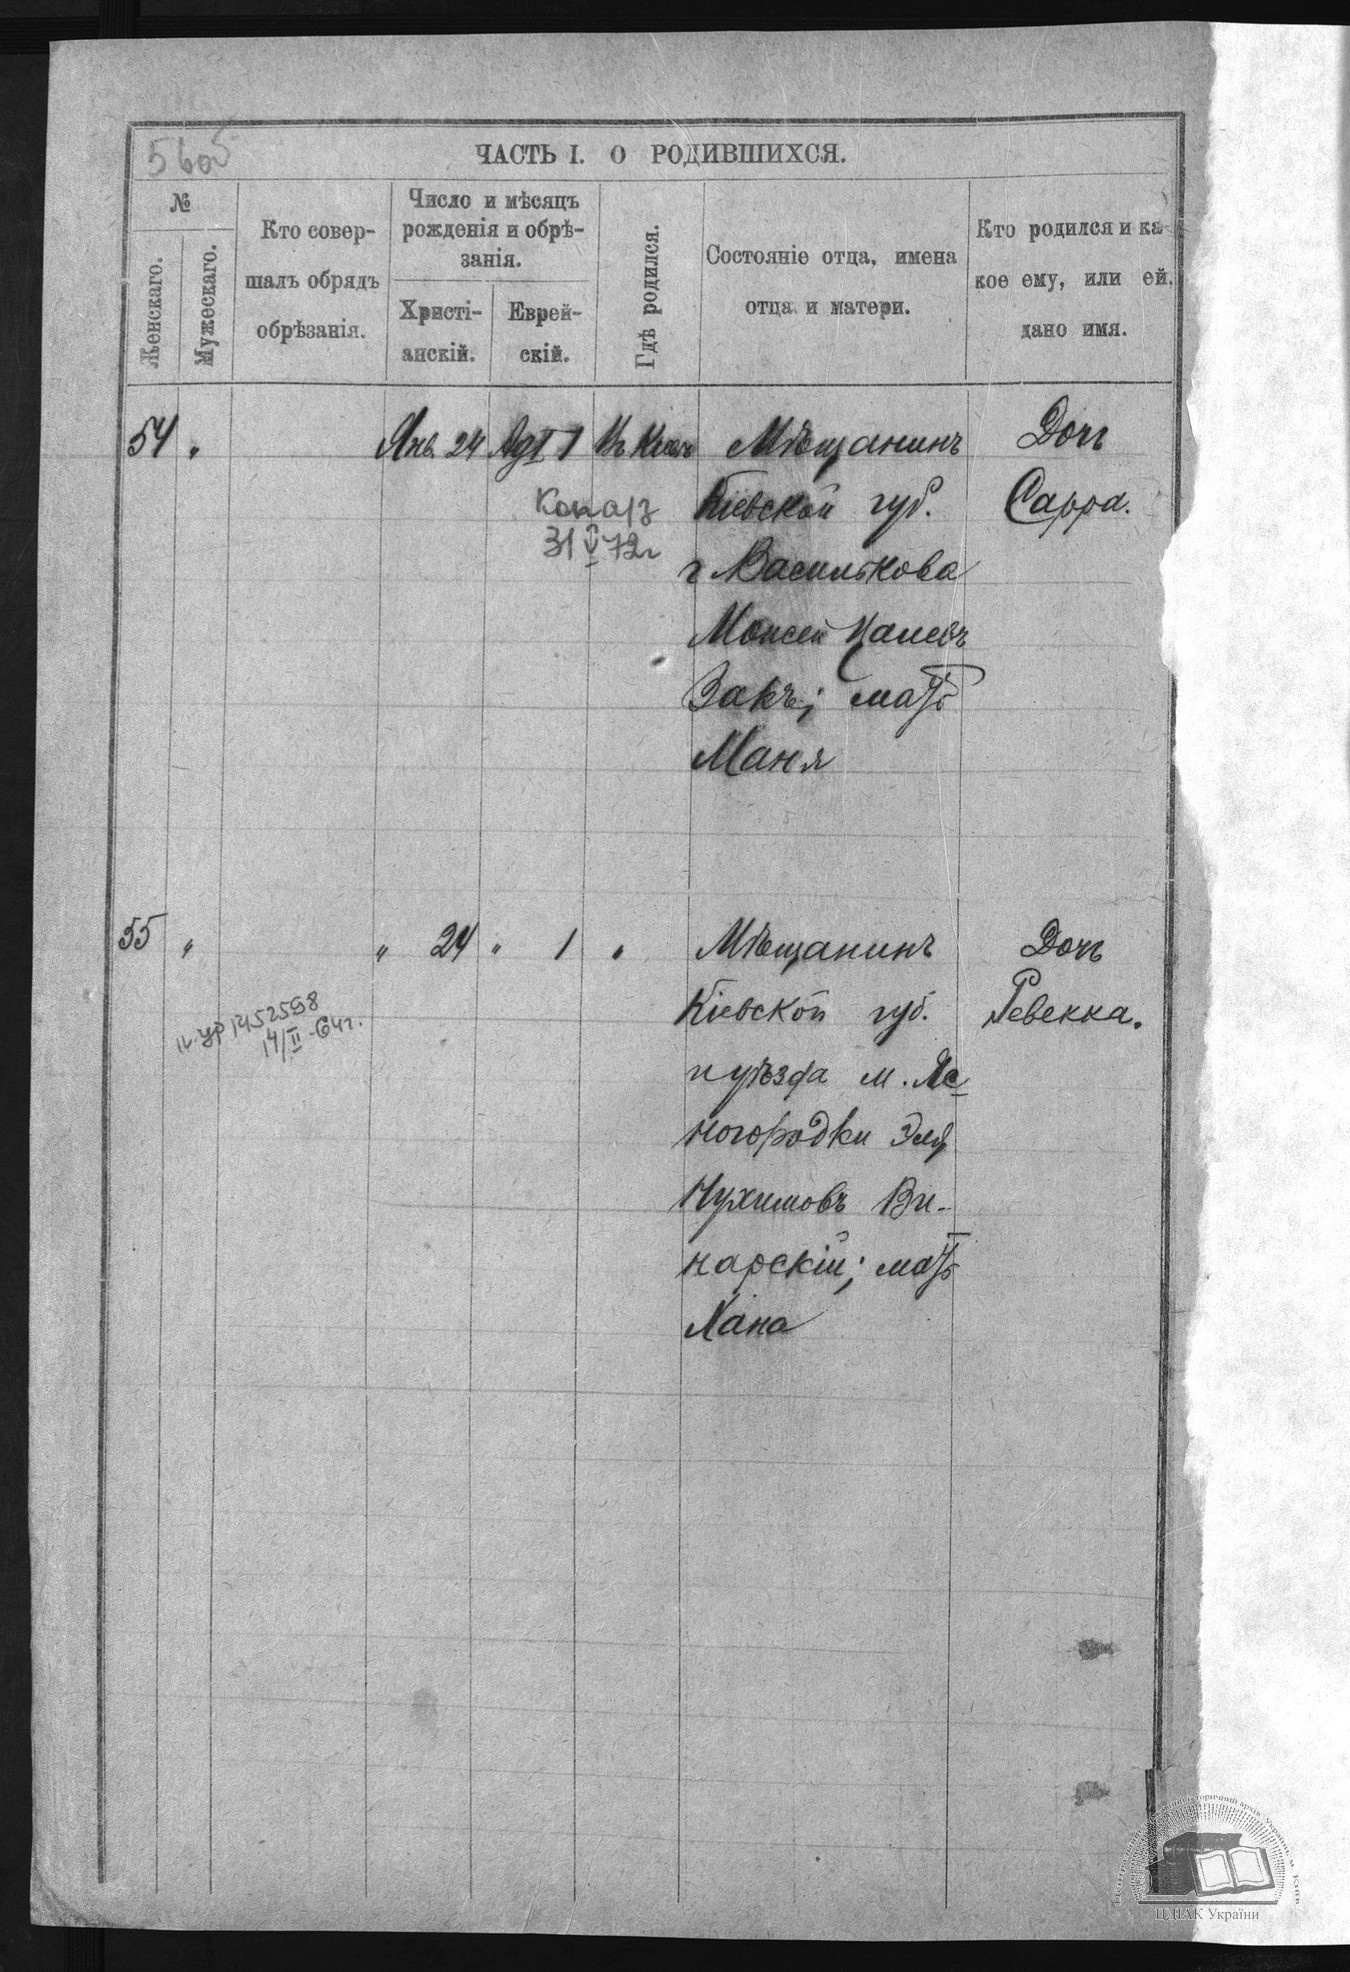 560б
ЧАСТЬ I. О РОДИВШИХСЯ.
№
Женскаго.
Мужескаго.
Кто совер-
шалъ обрядъ
обрѣзанія.
Число и мѣсяцъ
рожденія и обрѣ-
занія.
Христі-
анскій.
Еврей-
скій.
Гдѣ родился.
Состояніе отца, имена
отца и матери.
Кто родился и ка-
кое ему, или ей,
дано имя.
54 " Янв. 24 Ад I 1 Въ Кіевѣ Мѣщанинъ Дочь
Кіевской губ. Сарра.
г. Василькова
Моисей
Закъ; мать
Маня
31 V 72г
55 " " 24 " 1 " Мѣщанинъ Дочь
Кіевской губ. Ревекка.
и уѣзда м. Яс-
ногородки Эля
Нухимовъ Ви-
нарскій; мать
Хана
1452598
14/II-64г.
ЦДІАК України